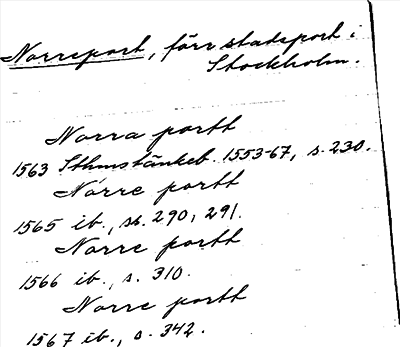 Norreport, förr stadsport i
Stockholm.
Norra portt
1563 Sthmstänkeb. 1553-67, s. 230.
Norre portt
1565 ib., ss. 290, 291.
Norre portt
1566 ib., s. 310.
Norre portt
1567 ib., s. 342.